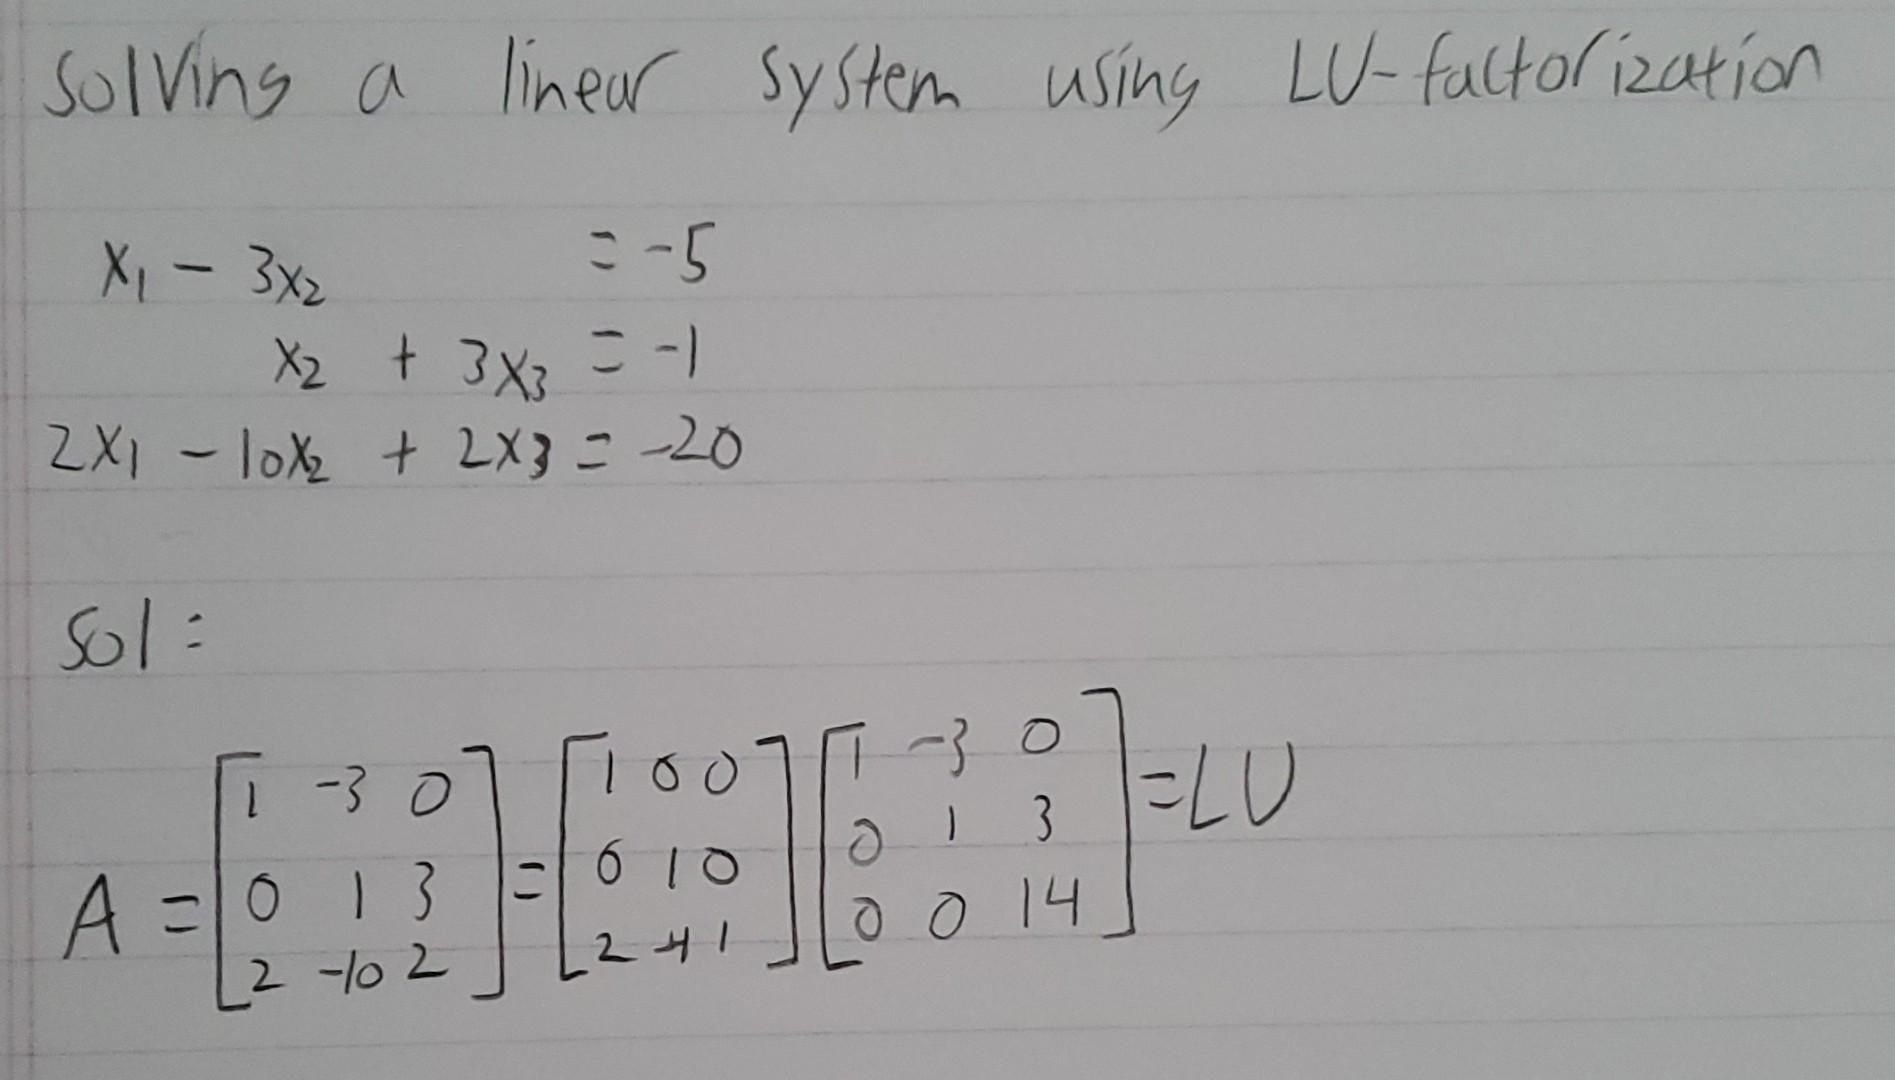 Solving a linear system using LU-factorization
x₁ - 3x₂ = -5
x₂ + 3x₃ = -1
2x₁ - 10x₂ + 2x₃ = -20
Sol:
A = [1 -3 0; 0 1 3; 2 -10 2] = [1 0 0; 0 1 0; 2 -4 1] [1 -3 0; 0 1 3; 0 0 14] = LU